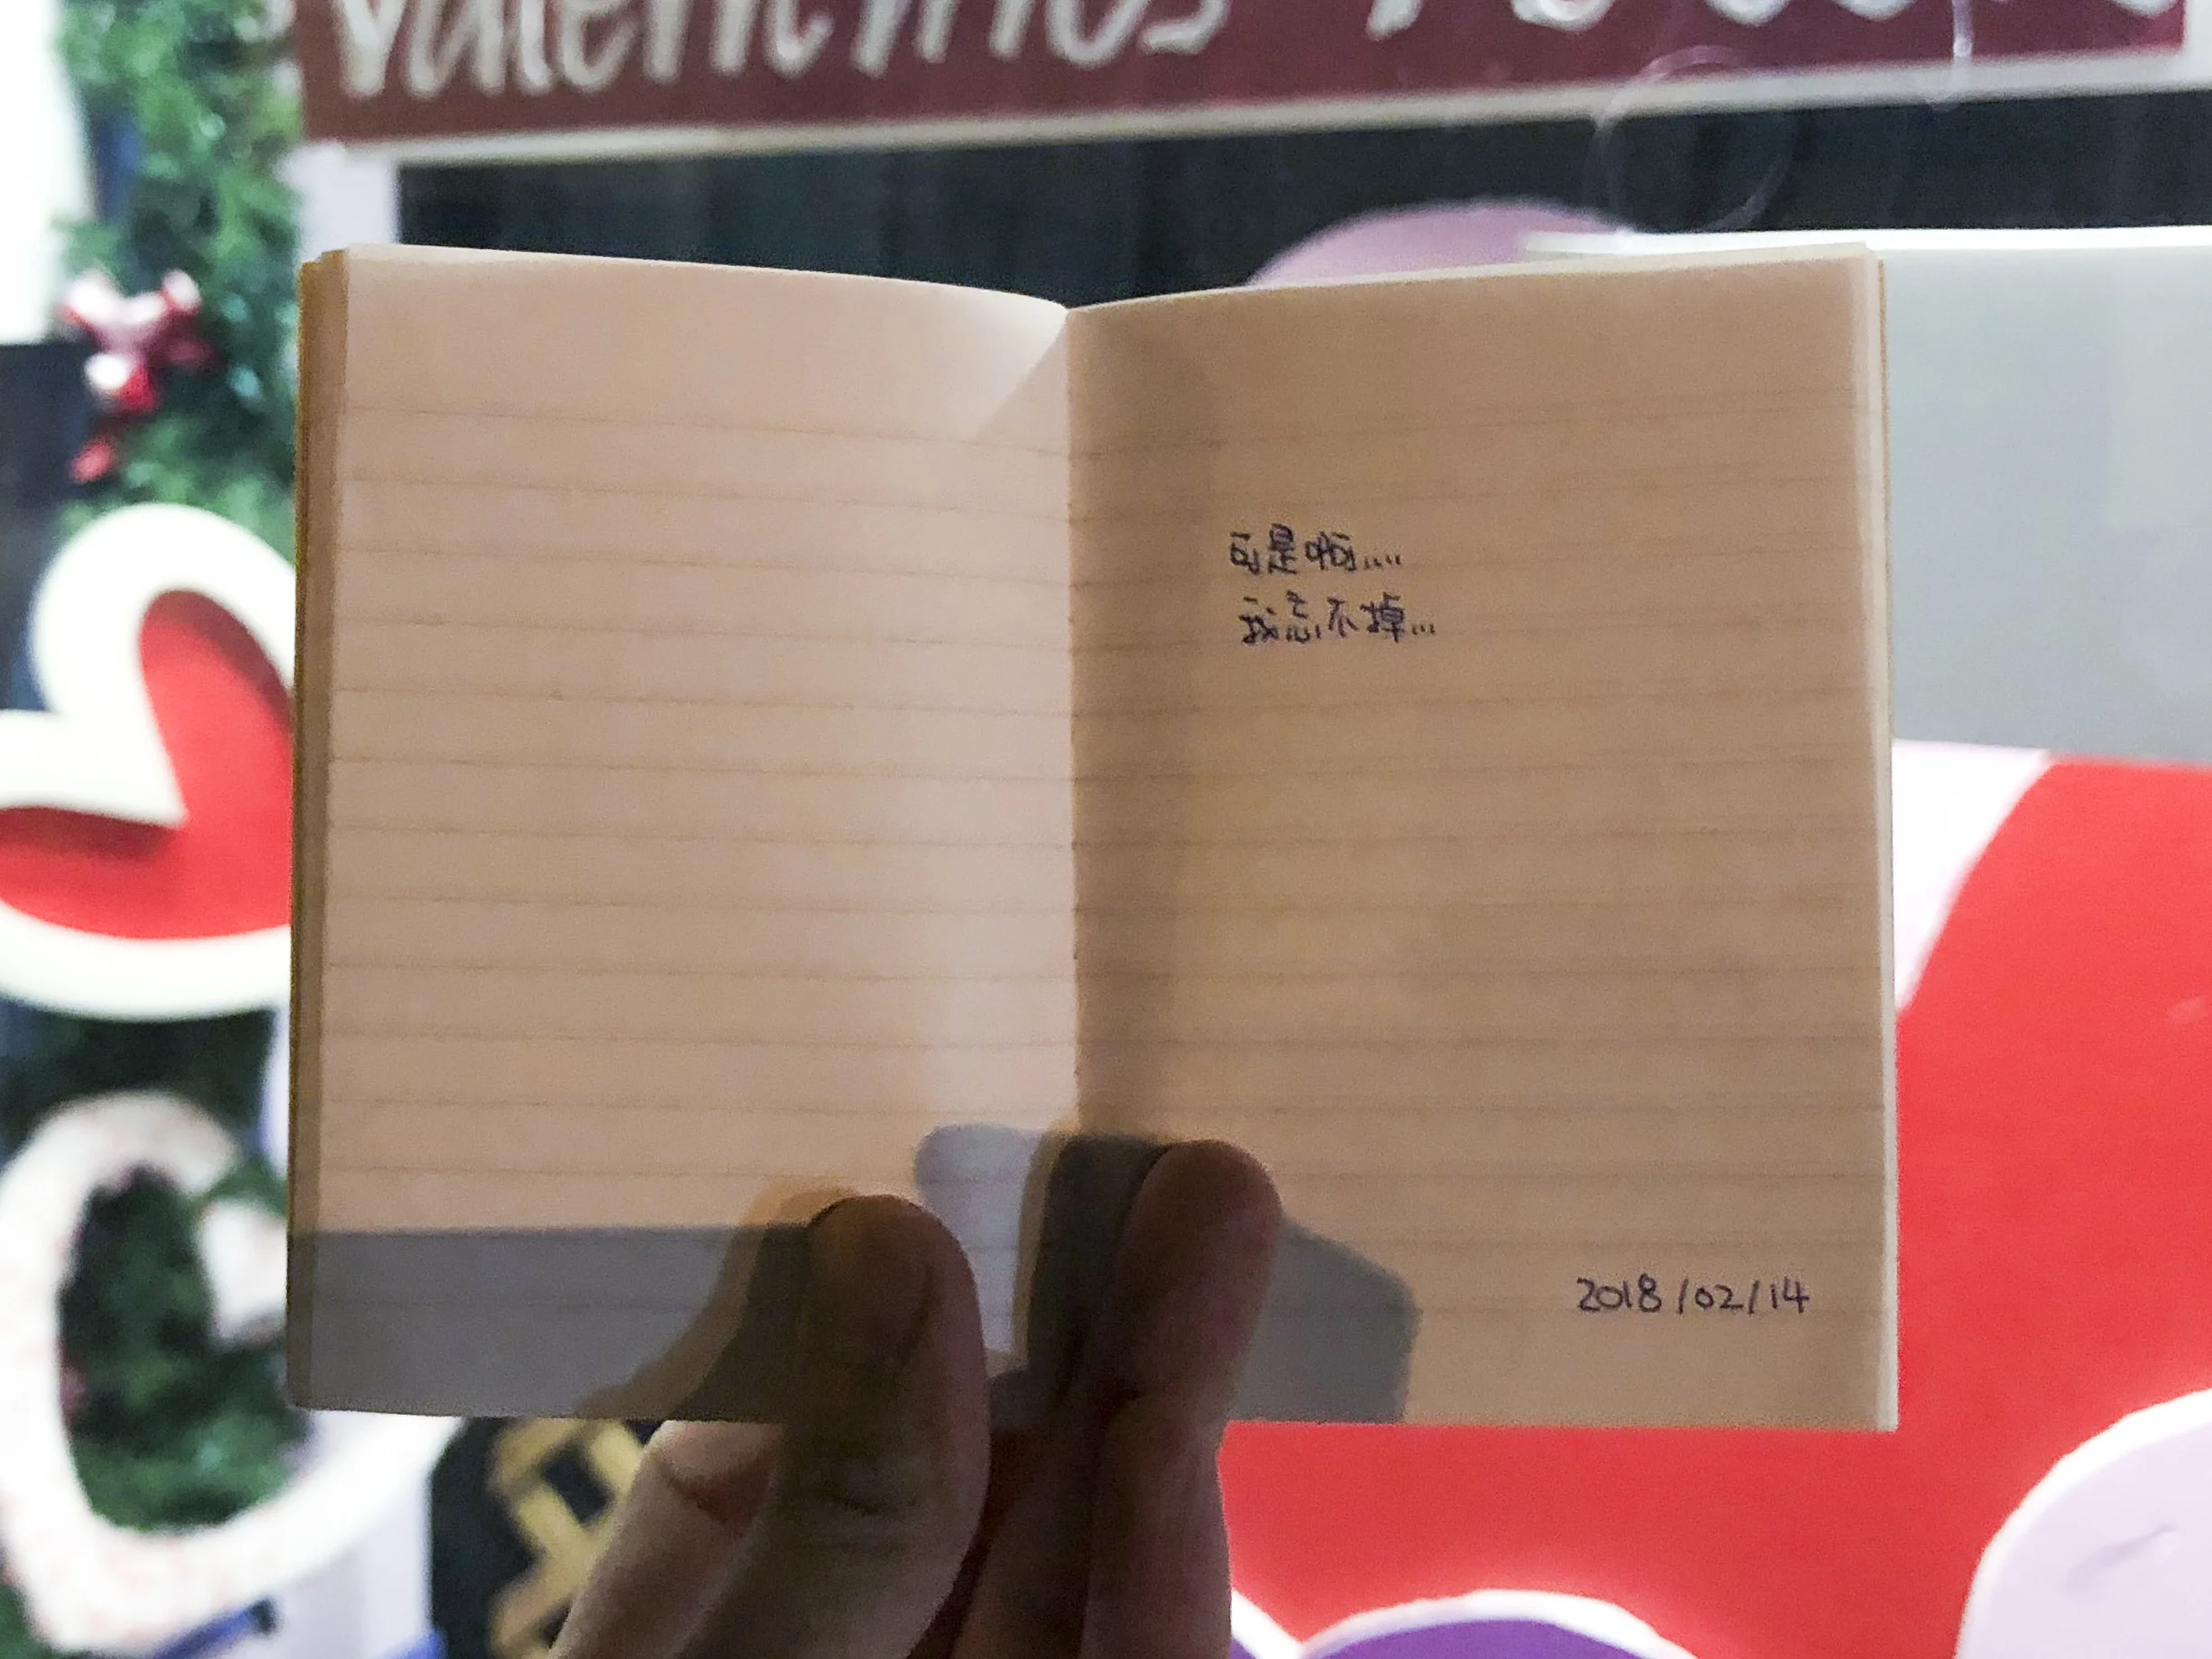 Valentines
可是啊....
我忘不掉...
2018/02/14